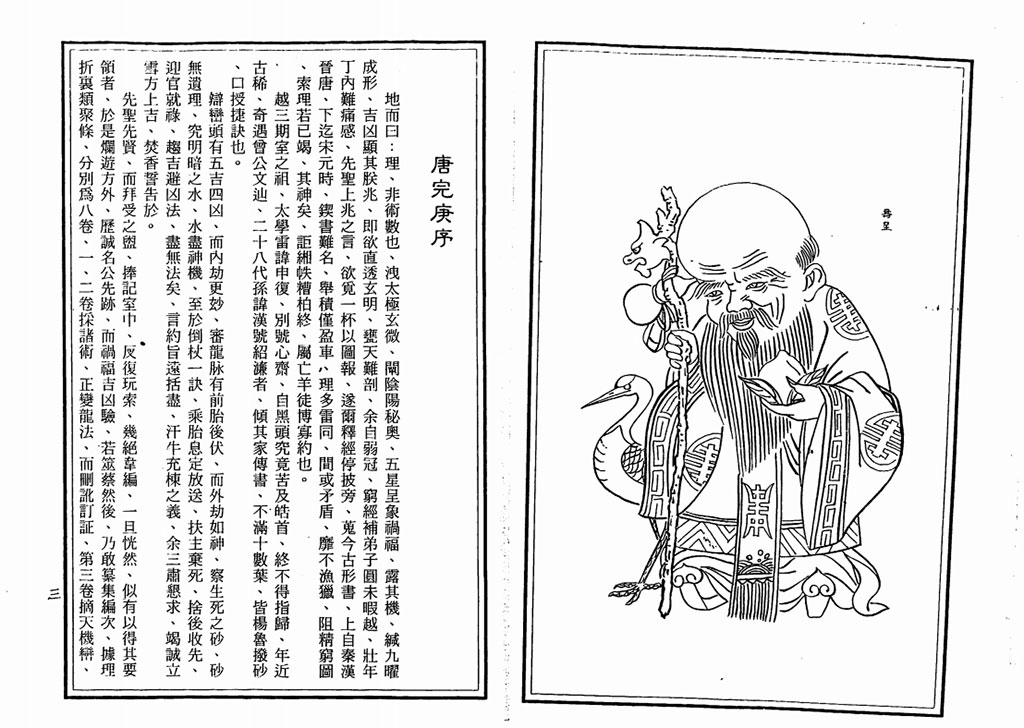 壽星
唐完庚序
地而曰：理、非術數也、洩太極玄微、闡陰陽秘奧、五星呈象禍福、露其機、緘九曜
成形、吉凶顯其朕兆、即欲直透玄明、甕天難剖、余自弱冠、窮經補弟子圓未暇越、壯年
丁內難痛感、先聖上兆之言、欲覓一杯以圖報、遂爾釋經停披旁、蒐今古形書、上自秦漢
晉唐、下迄宋元時、鍥書難名、舉積僅盈車、理多雷同、間或矛盾、靡不漁獵、阻精窮圖
、索理若已竭、其神矣、詎緗帙糟柏終、屬亡羊徒博寡約也。
越三期室之祖、太學雷諱申復、別號心齋、自黑頭究竟苦及皓首、終不得指歸、年近
古稀、奇遇曾公文辿、二十八代孫諱漢號紹濂者、傾其家傳書、不滿十數葉、皆楊魯撥砂
、口授捷訣也。
辯巒頭有五吉四凶、而內劫更妙、審龍脉有前胎後伏、而外劫如神、察生死之砂、砂
無遺理、究明暗之水、水盡神機、至於倒杖一訣、乘胎息定放送、扶主棄死、捨後收先、
迎官就祿、趨吉避凶法、盡無法矣、言約旨遠括盡、汗牛充棟之義、余三肅懇求、竭誠立
雪方上吉、焚香誓告於。
先聖先賢、而拜受之盥、捧記室中、反復玩索、幾絕韋編、一旦恍然、似有以得其要
領者、於是爛遊方外、歷誠名公先跡、而禍福吉凶驗、若筮蔡然後、乃敢纂集編次、據理
折裏類聚條、分別爲八卷、一、二卷採諸術、正變龍法、而刪訛訂証、第三卷摘天機巒、
三